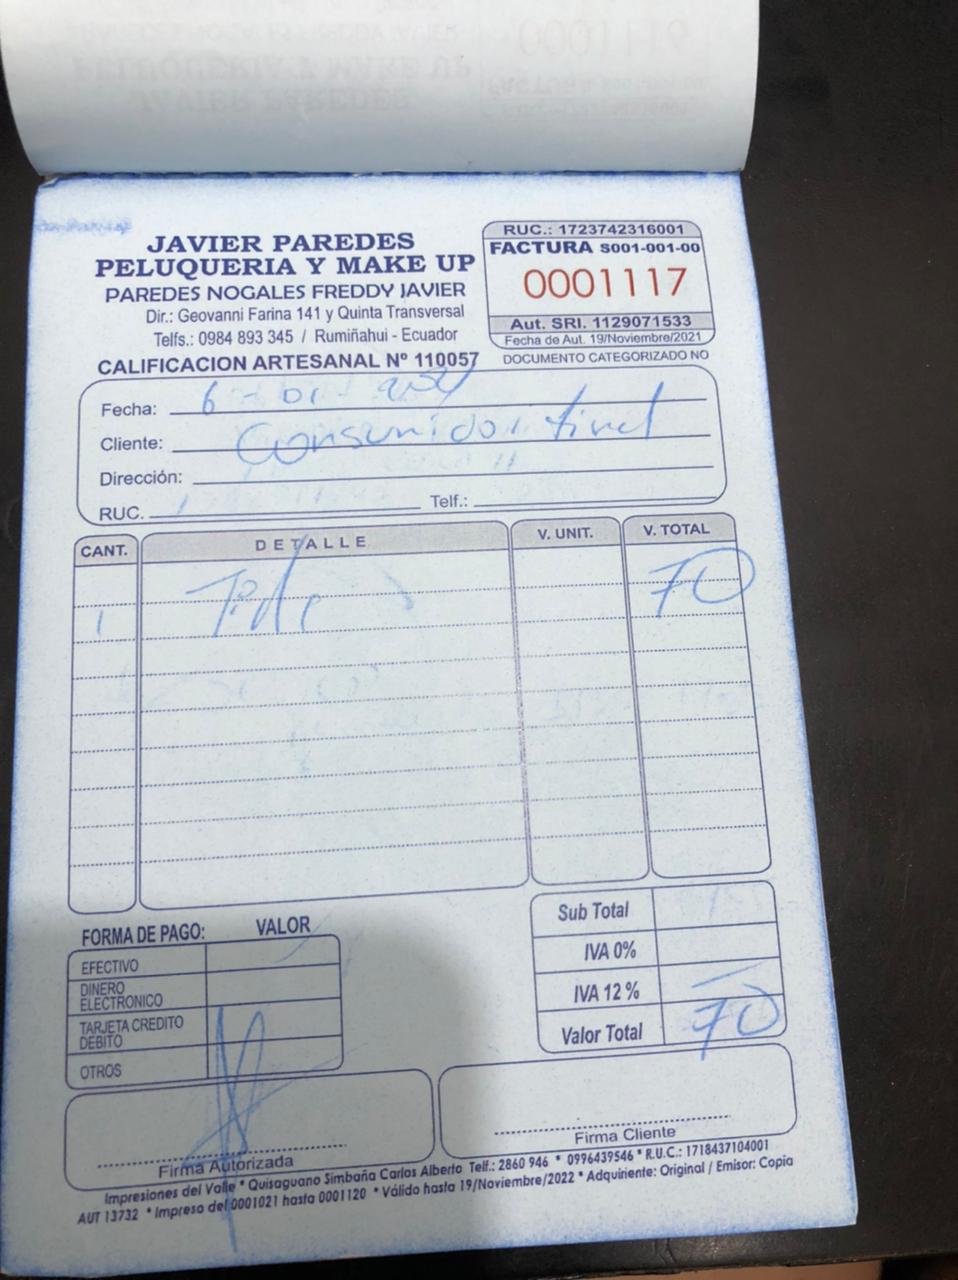 JAVIER PAREDES
PELUQUERIA Y MAKE UP
PAREDES NOGALES FREDDY JAVIER
Dir.: Geovanni Farina 141 y Quinta Transversal
Telfs.: 0984 893 345 / Rumiñahui - Ecuador
CALIFICACION ARTESANAL Nº 110057
RUC.: 1723742316001
FACTURA S001-001-00
0001117
Aut. SRI. 1129071533
Fecha de Aut. 19/Noviembre/2021
DOCUMENTO CATEGORIZADO NO
Fecha: 6
Cliente: Consumidor final
Dirección:
RUC. Telf.:
CANT. DETALLE V. UNIT. V. TOTAL
1 70
FORMA DE PAGO: VALOR
EFECTIVO
DINERO ELECTRONICO
TARJETA CREDITO DEBITO
OTROS
Sub Total
IVA 0%
IVA 12 %
Valor Total 70
Firma Autorizada
Firma Cliente
Impresiones del Valle * Quisaguano Simbaña Carlos Alberto Telf.: 2860 946 * 0996439546 * R.U.C.: 1718437104001
AUT 13732 * Impreso del 0001021 hasta 0001120 * Válido hasta 19/Noviembre/2022 * Adquiriente: Original / Emisor: Copia